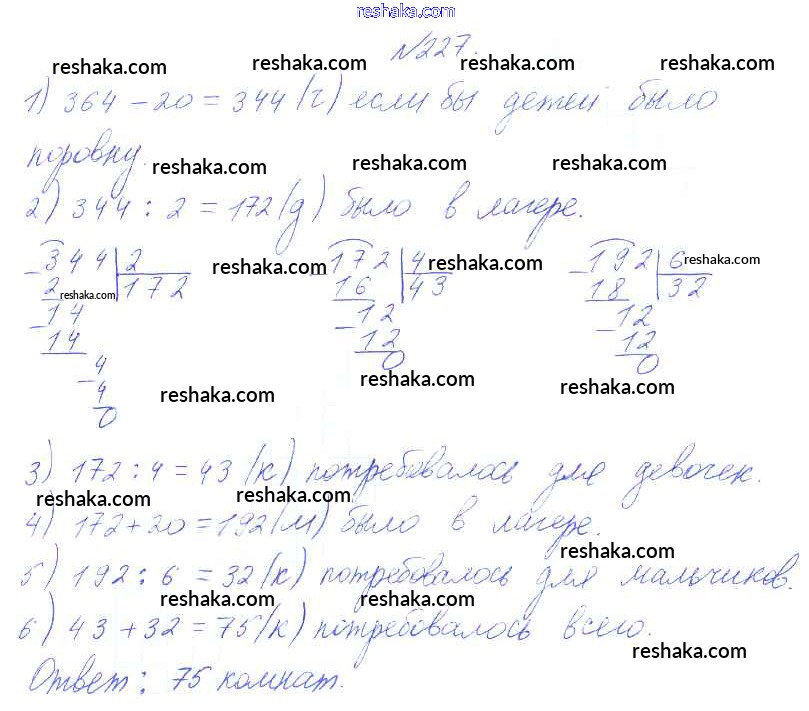 reshaka.com
№227.
reshaka.com reshaka.com reshaka.com
1) 364 - 20 = 344 (ч) если бы детей было
поровну.
reshaka.com reshaka.com reshaka.com
2) 344 : 2 = 172 (д) было в лагере.
- 344 | 2 - 172 | 4 - 192 | 6
reshaka.com reshaka.com reshaka.com
2 | 172 16 | 43 18 | 32
reshaka.com
- 14 - 12 - 12
14 12 12
- 4 0 0
4
0
reshaka.com reshaka.com reshaka.com
3) 172 : 4 = 43 (к) потребовалось для девочек.
reshaka.com reshaka.com
4) 172 + 20 = 192 (м) было в лагере.
reshaka.com
5) 192 : 6 = 32 (к) потребовалось для мальчиков.
reshaka.com reshaka.com
6) 43 + 32 = 75 (к) потребовалось всего.
reshaka.com
Ответ: 75 комнат.